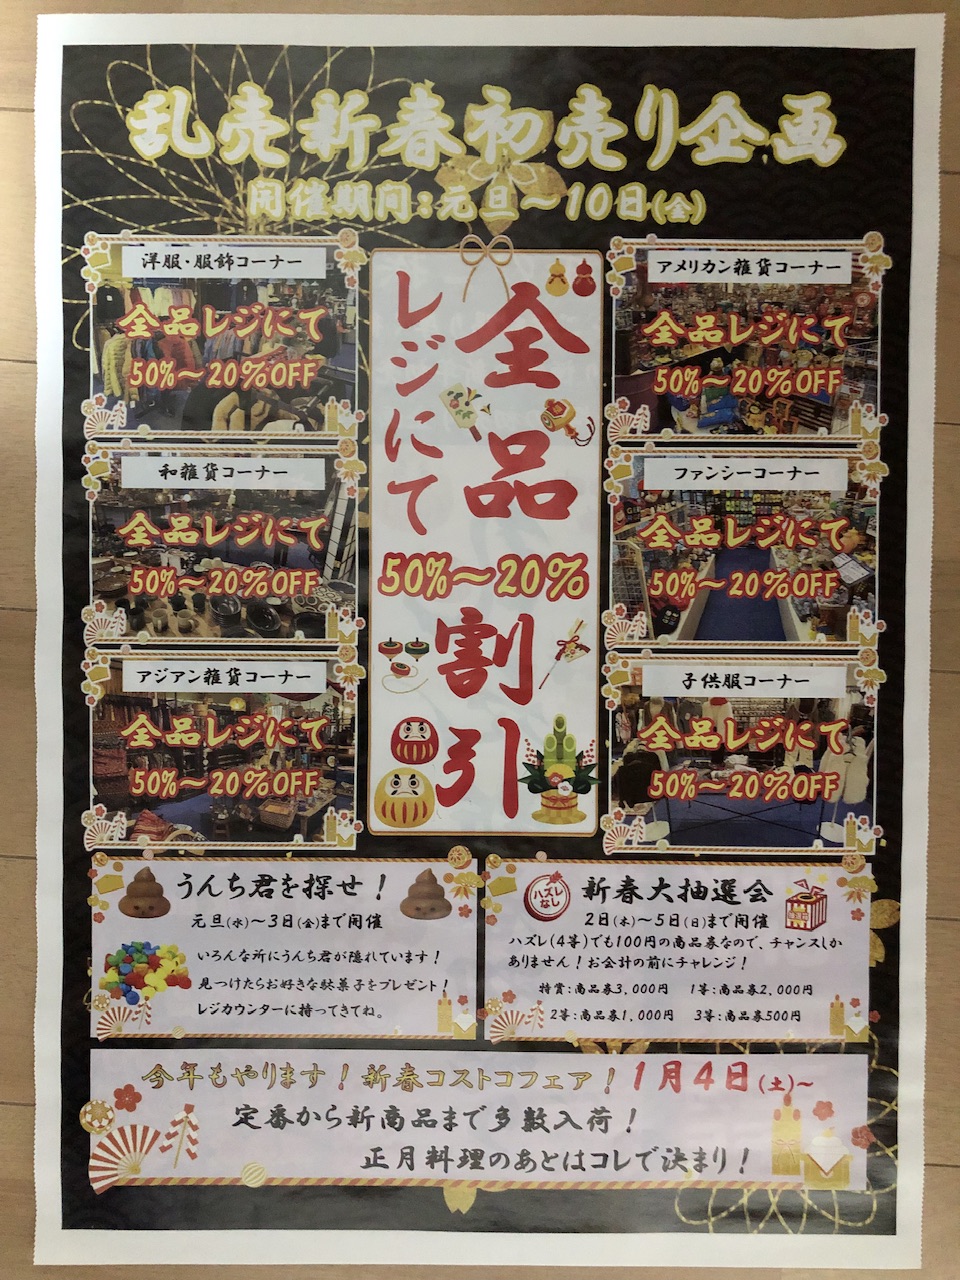 乱売新春初売り企画
開催期間：元旦～10日(金)
洋服・服飾コーナー
全品レジにて
50%～20%OFF
和雑貨コーナー
全品レジにて
50%～20%OFF
アジアン雑貨コーナー
全品レジにて
50%～20%OFF
全品
レジにて
50%～20%
割引
アメリカン雑貨コーナー
全品レジにて
50%～20%OFF
ファンシーコーナー
全品レジにて
50%～20%OFF
子供服コーナー
全品レジにて
50%～20%OFF
うんち君を探せ！
元旦(水)～3日(金)まで開催
いろんな所にうんち君が隠れています！
見つけたらお好きな駄菓子をプレゼント！
レジカウンターに持ってきてね。
ハズレ
なし
新春大抽選会
抽選箱
2日(木)～5日(日)まで開催
ハズレ(4等)でも100円の商品券なので、チャンスしか
ありません！お会計の前にチャレンジ！
特賞：商品券3,000円　1等：商品券2,000円
2等：商品券1,000円　3等：商品券500円
今年もやります！新春コストコフェア！1月4日(土)～
定番から新商品まで多数入荷！
正月料理のあとはコレで決まり！